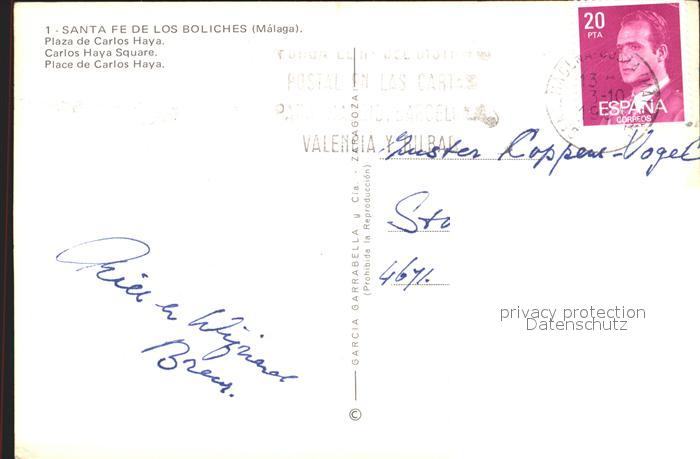 1 - SANTA FE DE LOS BOLICHES (Málaga).
Plaza de Carlos Haya.
Carlos Haya Square.
Place de Carlos Haya.
POSTAL EN LAS CARTAS
VALENCIA Y BILBAO
20
PTA
ESPAÑA
CORREOS
Coppens-Vogel
Sto
4671.
en Wijnand
GARCIA GARRABELLA y Cía. - ZARAGOZA
(Prohibida la Reproducción)
©
privacy protection
Datenschutz